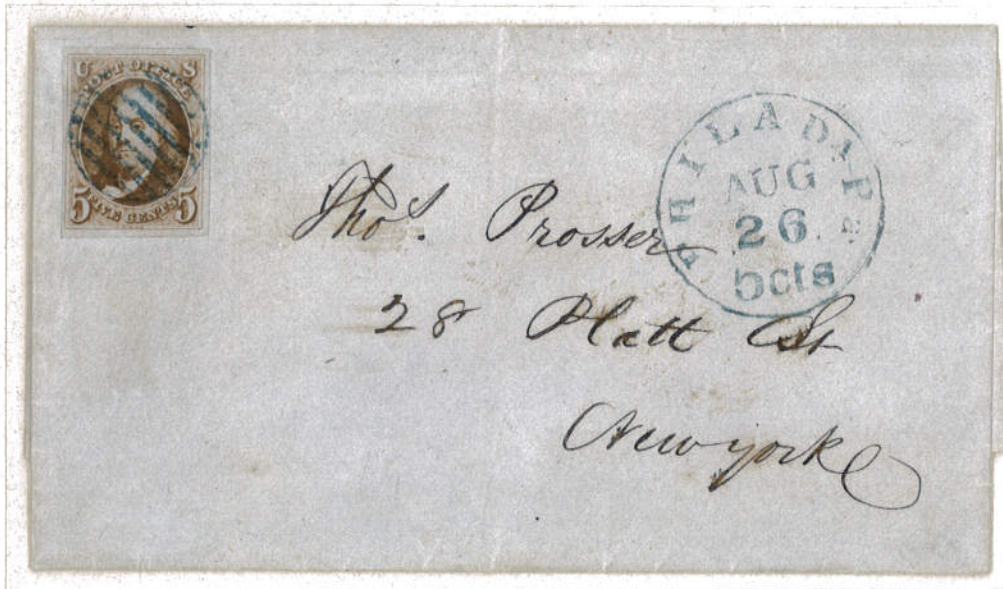 U S
POST OFFICE
5 5
FIVE CENTS
PHILADA Pa
AUG
26
5cts
Thos. Prosser
28 Platt St
New york